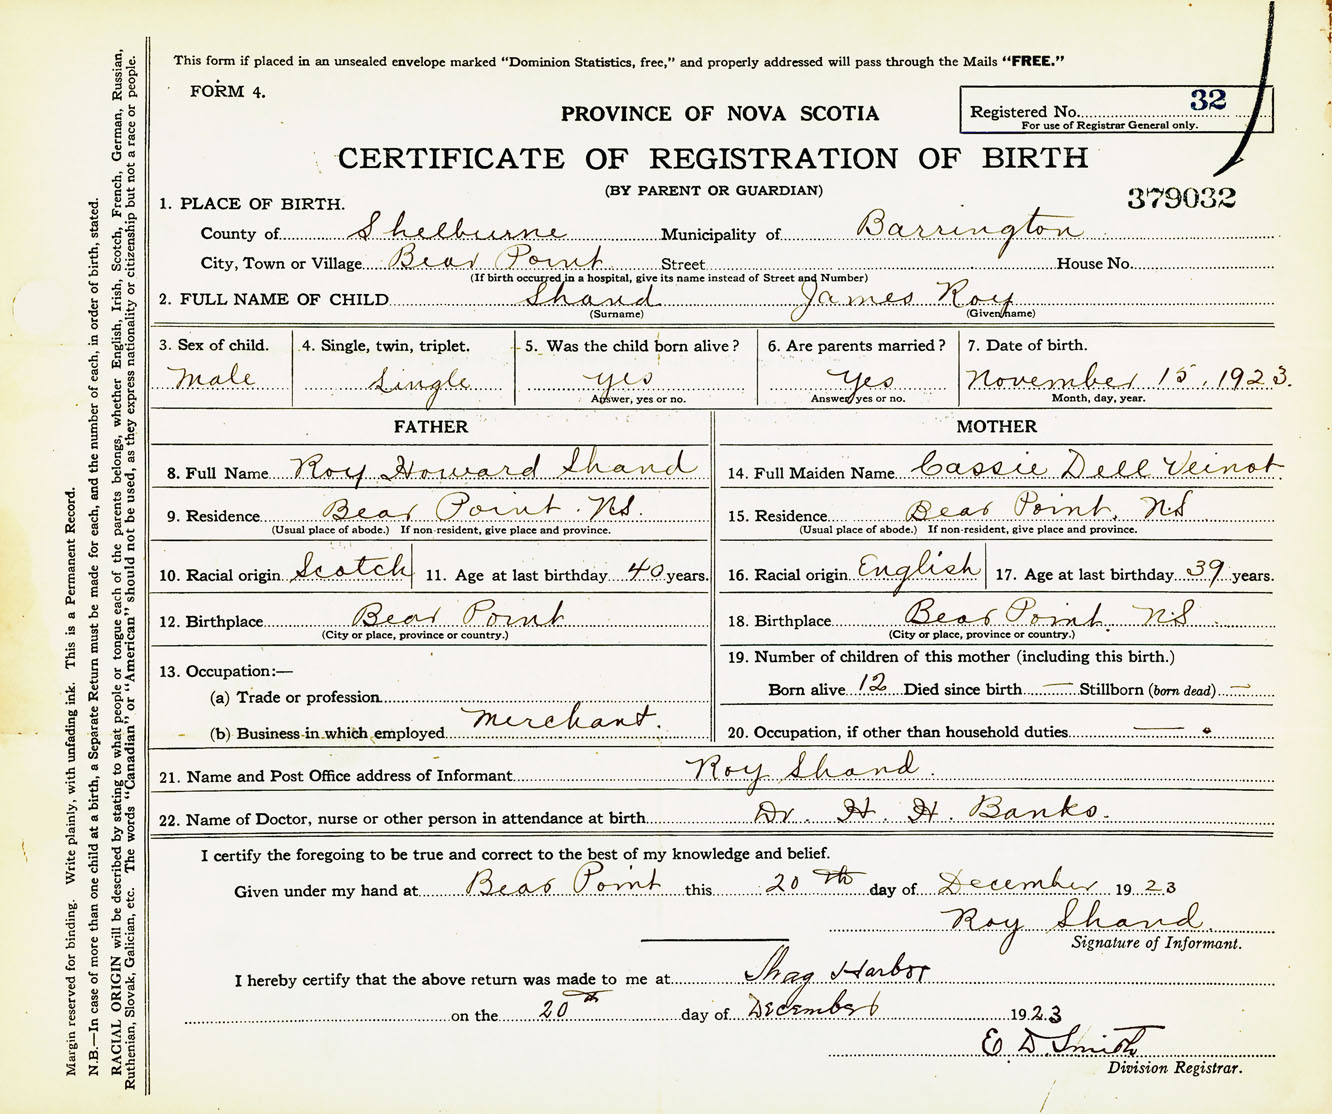 This form if placed in an unsealed envelope marked "Dominion Statistics, free," and properly addressed will pass through the Mails "FREE."
FORM 4.
PROVINCE OF NOVA SCOTIA
Registered No. 32
For use of Registrar General only.
CERTIFICATE OF REGISTRATION OF BIRTH
(BY PARENT OR GUARDIAN)
379032
1. PLACE OF BIRTH.
County of Shelburne Municipality of Barrington
City, Town or Village Bear Point Street House No.
(If birth occurred in a hospital, give its name instead of Street and Number)
2. FULL NAME OF CHILD Shand James Roy
(Surname) (Given name)
3. Sex of child. 4. Single, twin, triplet. 5. Was the child born alive? 6. Are parents married? 7. Date of birth.
Male Single yes Yes November 15, 1923.
Answer, yes or no. Answer, yes or no. Month, day, year.
FATHER MOTHER
8. Full Name Roy Howard Shand 14. Full Maiden Name Cassie Dell Veinot
9. Residence Bear Point. NS. 15. Residence Bear Point, NS
(Usual place of abode.) If non-resident, give place and province. (Usual place of abode.) If non-resident, give place and province.
10. Racial origin Scotch 11. Age at last birthday 40 years. 16. Racial origin English 17. Age at last birthday 39 years.
12. Birthplace Bear Point 18. Birthplace Bear Point NS
(City or place, province or country.) (City or place, province or country.)
13. Occupation:— 19. Number of children of this mother (including this birth.)
(a) Trade or profession Born alive 12 Died since birth — Stillborn (born dead) —
(b) Business in which employed Merchant. 20. Occupation, if other than household duties —
21. Name and Post Office address of Informant Roy Shand.
22. Name of Doctor, nurse or other person in attendance at birth Dr. H. H. Banks.
I certify the foregoing to be true and correct to the best of my knowledge and belief.
Given under my hand at Bear Point this 20th day of December 1923
Roy Shand.
Signature of Informant.
I hereby certify that the above return was made to me at Shag Harbor
on the 20th day of December 1923
E D. Smith
Division Registrar.
Margin reserved for binding. Write plainly, with unfading ink. This is a Permanent Record.
N.B.—In case of more than one child at a birth, a Separate Return must be made for each, and the number of each, in order of birth, stated.
RACIAL ORIGIN will be described by stating to what people or tongue each of the parents belongs, whether English, Irish, Scotch, French, German, Russian,
Ruthenian, Slovak, Galician, etc. The words "Canadian" or "American" should not be used, as they express nationality or citizenship but not a race or people.